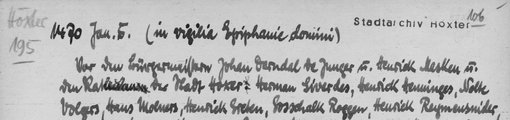 Höxter
195
1470 Jan. 5. (in vigilia Epiphanie domini)
Stadtarchiv Höxter
106
Vor den Bürgermeistern Johan Derndal de Junger u. Henrich Mesken u.
den Ratleuten der Stadt Höxer: Herman Elverdes, Henrich Henninges, Nolte
Volgers, Hans Molners, Henrich Greten, Gosschalk Roggen, Henrich Reymensnider,